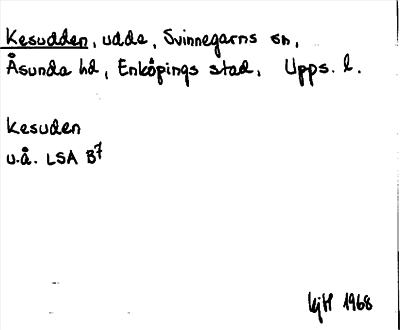 Kesudden, udde, Svinnegarns sn,
Åsunda hd, Enköpings stad, Upps. l.
Kesuden
u.å. LSA B7
1968